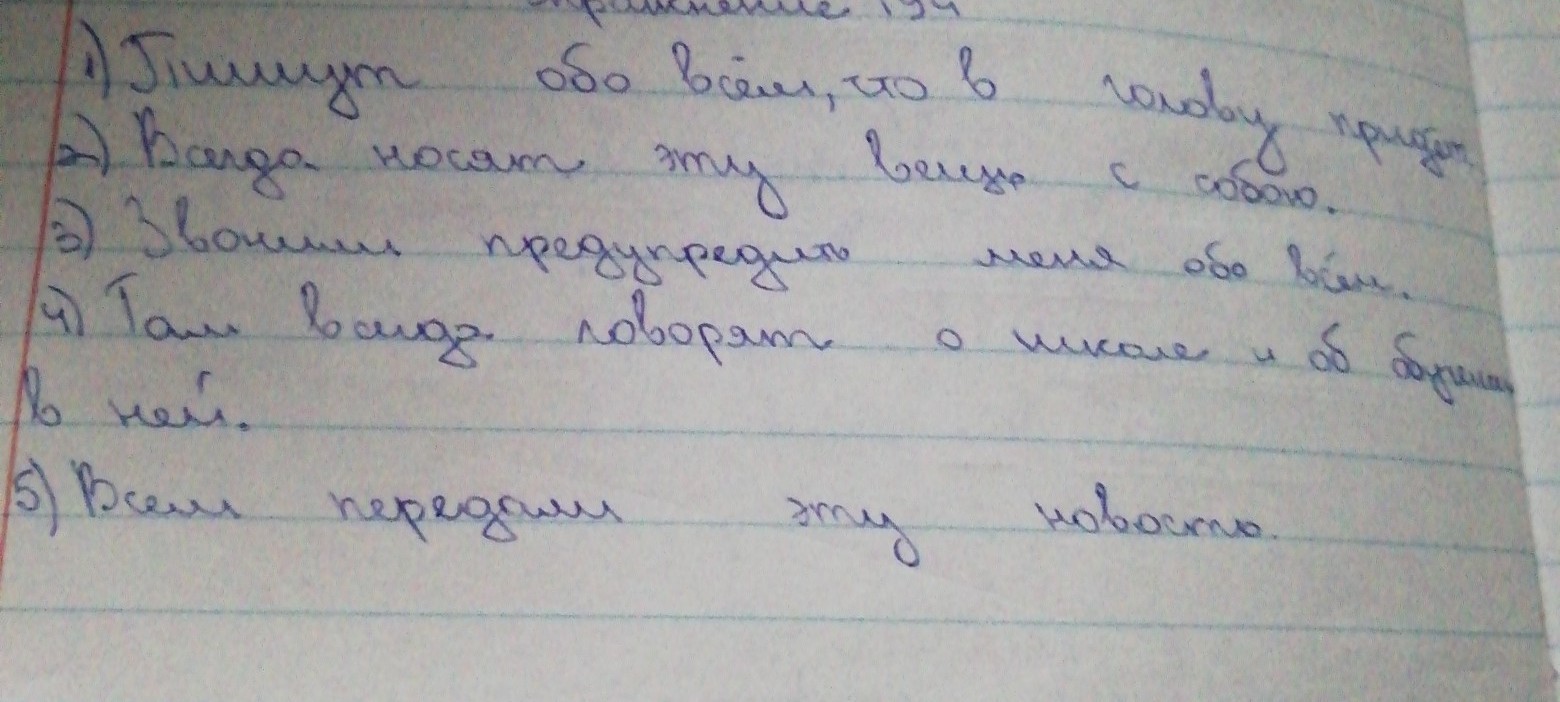 Упражнение 194
1) Пишут обо всём, что в голову придёт
2) Всегда носят эту вещь с собою.
3) Звонили предупредить меня обо всём.
4) Там всегда говорят о школе и об обучении
в ней.
5) Всем передали эту новость.